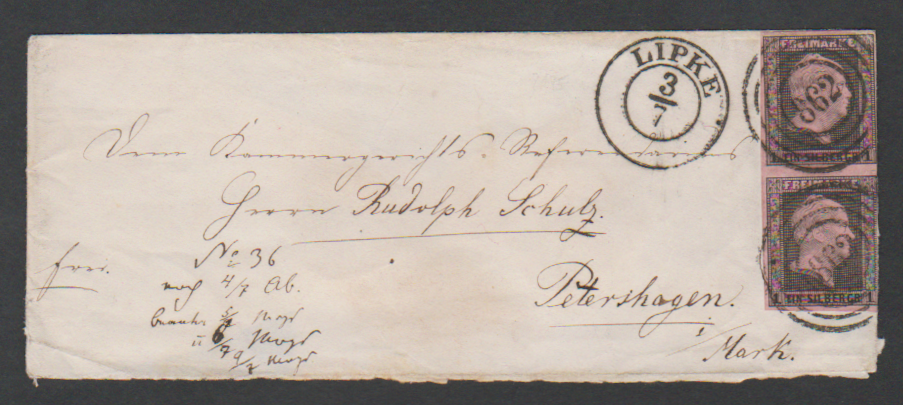 LIPKE
3
7
FREIMARKE
862
1 EIN SILBERGR 1
FREIMARKE
862
1 EIN SILBERGR 1
Dem Kammergerichts-Referendarius
Herrn Rudolph Schulz.
Petershagen.
i/Mark.
frei.
No 36
noch 4/7 Ab.
6/7
9/7